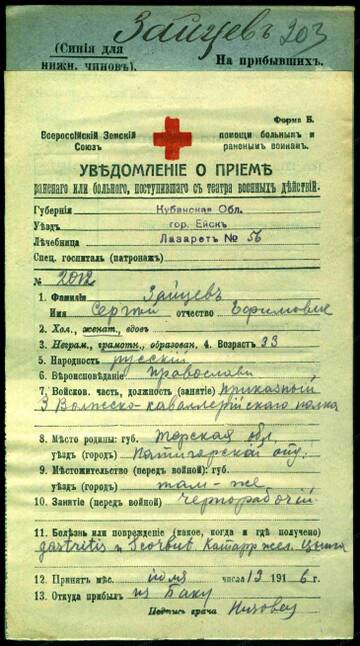 Зайцевъ 203
(Синія для
нижн. чиновъ).
На прибывшихъ.
Форма Б.
Всероссійскій Земскій
Союзъ
помощи больнымъ и
раненымъ воинамъ.
УВѢДОМЛЕНІЕ О ПРІЕМѢ
раненаго или больного, поступившаго съ театра военныхъ дѣйствій.
Губернія Кубанская Обл.
Уѣздъ гор. Ейскъ
Лѣчебница Лазаретъ № 56
Спец. госпиталь (патронажъ)
№ 2012
1. Фамилія Зайцевъ
Имя Сергѣй отчество Ефимовичъ
2. Хол., женат., вдовъ
3. Неграм., грамотн., образован. 4. Возрастъ 23
5. Народность русскій
6. Вѣроисповѣданіе православн
7. Войсков. часть, должность (занятіе) приказный
3 Волжско-кавалерійскаго полка
8. Мѣсто родины: губ. Терская обл.
уѣздъ (городъ) Пятигорскій отд.
9. Мѣстожительство (передъ войной): губ.
уѣздъ (городъ) там-же
10. Занятіе (передъ войной) чернорабочій
11. Болѣзнь или поврежденіе (какое, когда и гдѣ получено)
gastritis и Scorbut Катарръ жел. Цынга
12. Принятъ мѣс. іюля числа 13 1916 г.
13. Откуда прибылъ из Баку
Подпись врача